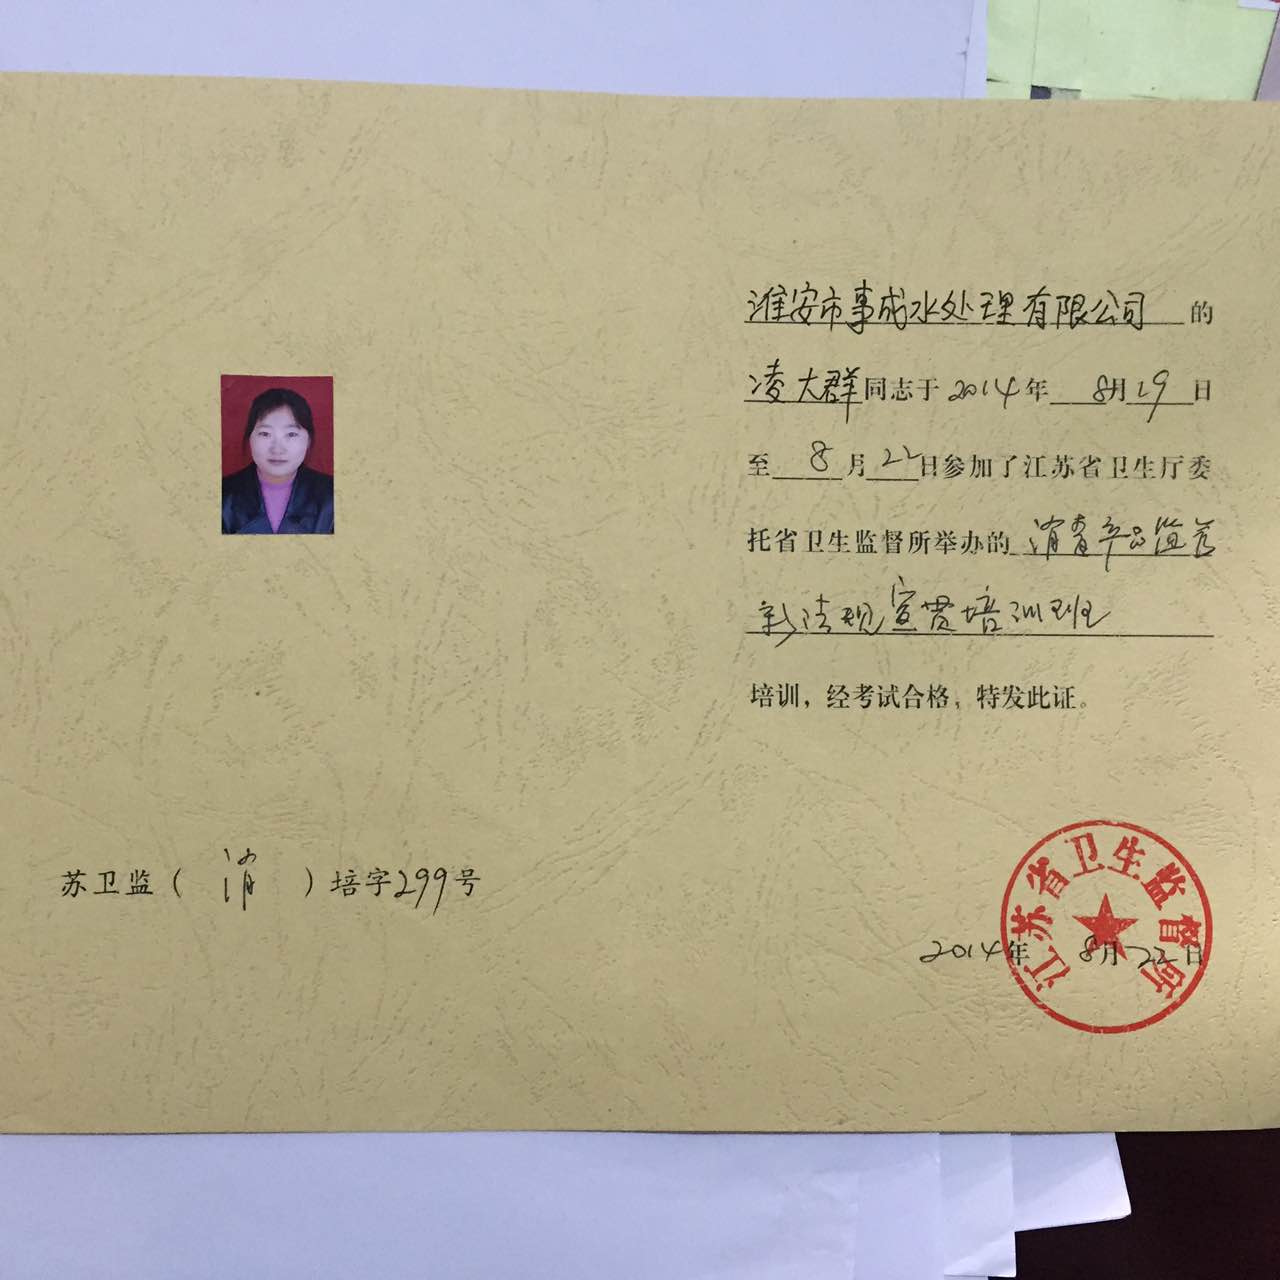 淮安市事成水处理有限公司 的
凌大群同志于 2014年 8月19日
至 8 月 22日参加了江苏省卫生厅委
托省卫生监督所举办的 消毒产品监管
新法规宣贯培训班
培训，经考试合格，特发此证。
苏卫监（ 消 ）培字299号
江苏省卫生监督所
2014年 8月22日